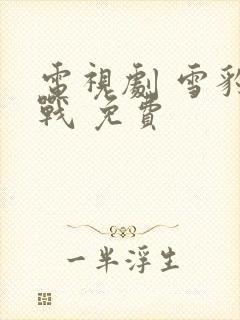 電視劇 雪豹
戰 免費
一半浮生